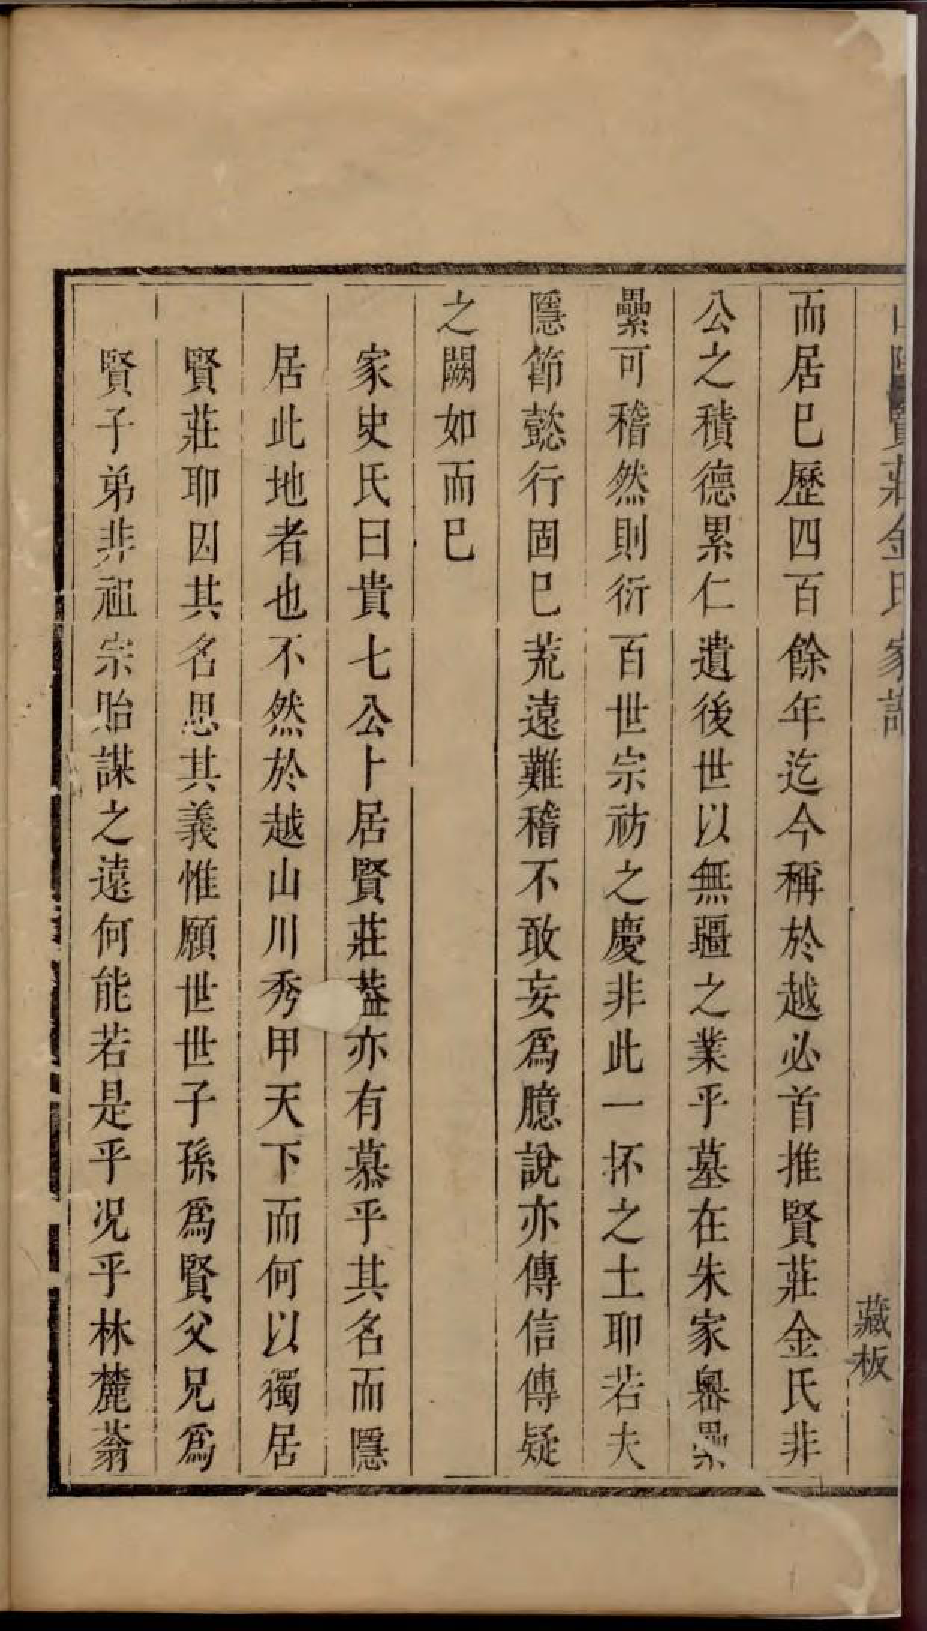 山陰賢莊金氏家譜
藏板
而居巳歷四百餘年迄今稱於越必首推賢莊金氏非
公之積德累仁遺後世以無疆之業乎墓在朱家嶴纍
纍可稽然則衍百世宗祊之慶非此一抔之土耶若夫
隱節懿行固巳荒遠難稽不敢妄爲臆說亦傳信傳疑
之闕如而巳
家史氏曰貴七公卜居賢莊葢亦有慕乎其名而隱
居此地者也不然於越山川秀甲天下而何以獨居
賢莊耶因其名思其義惟願世世子孫爲賢父兄爲
賢子弟非祖宗貽謀之遠何能若是乎况乎林麓蓊